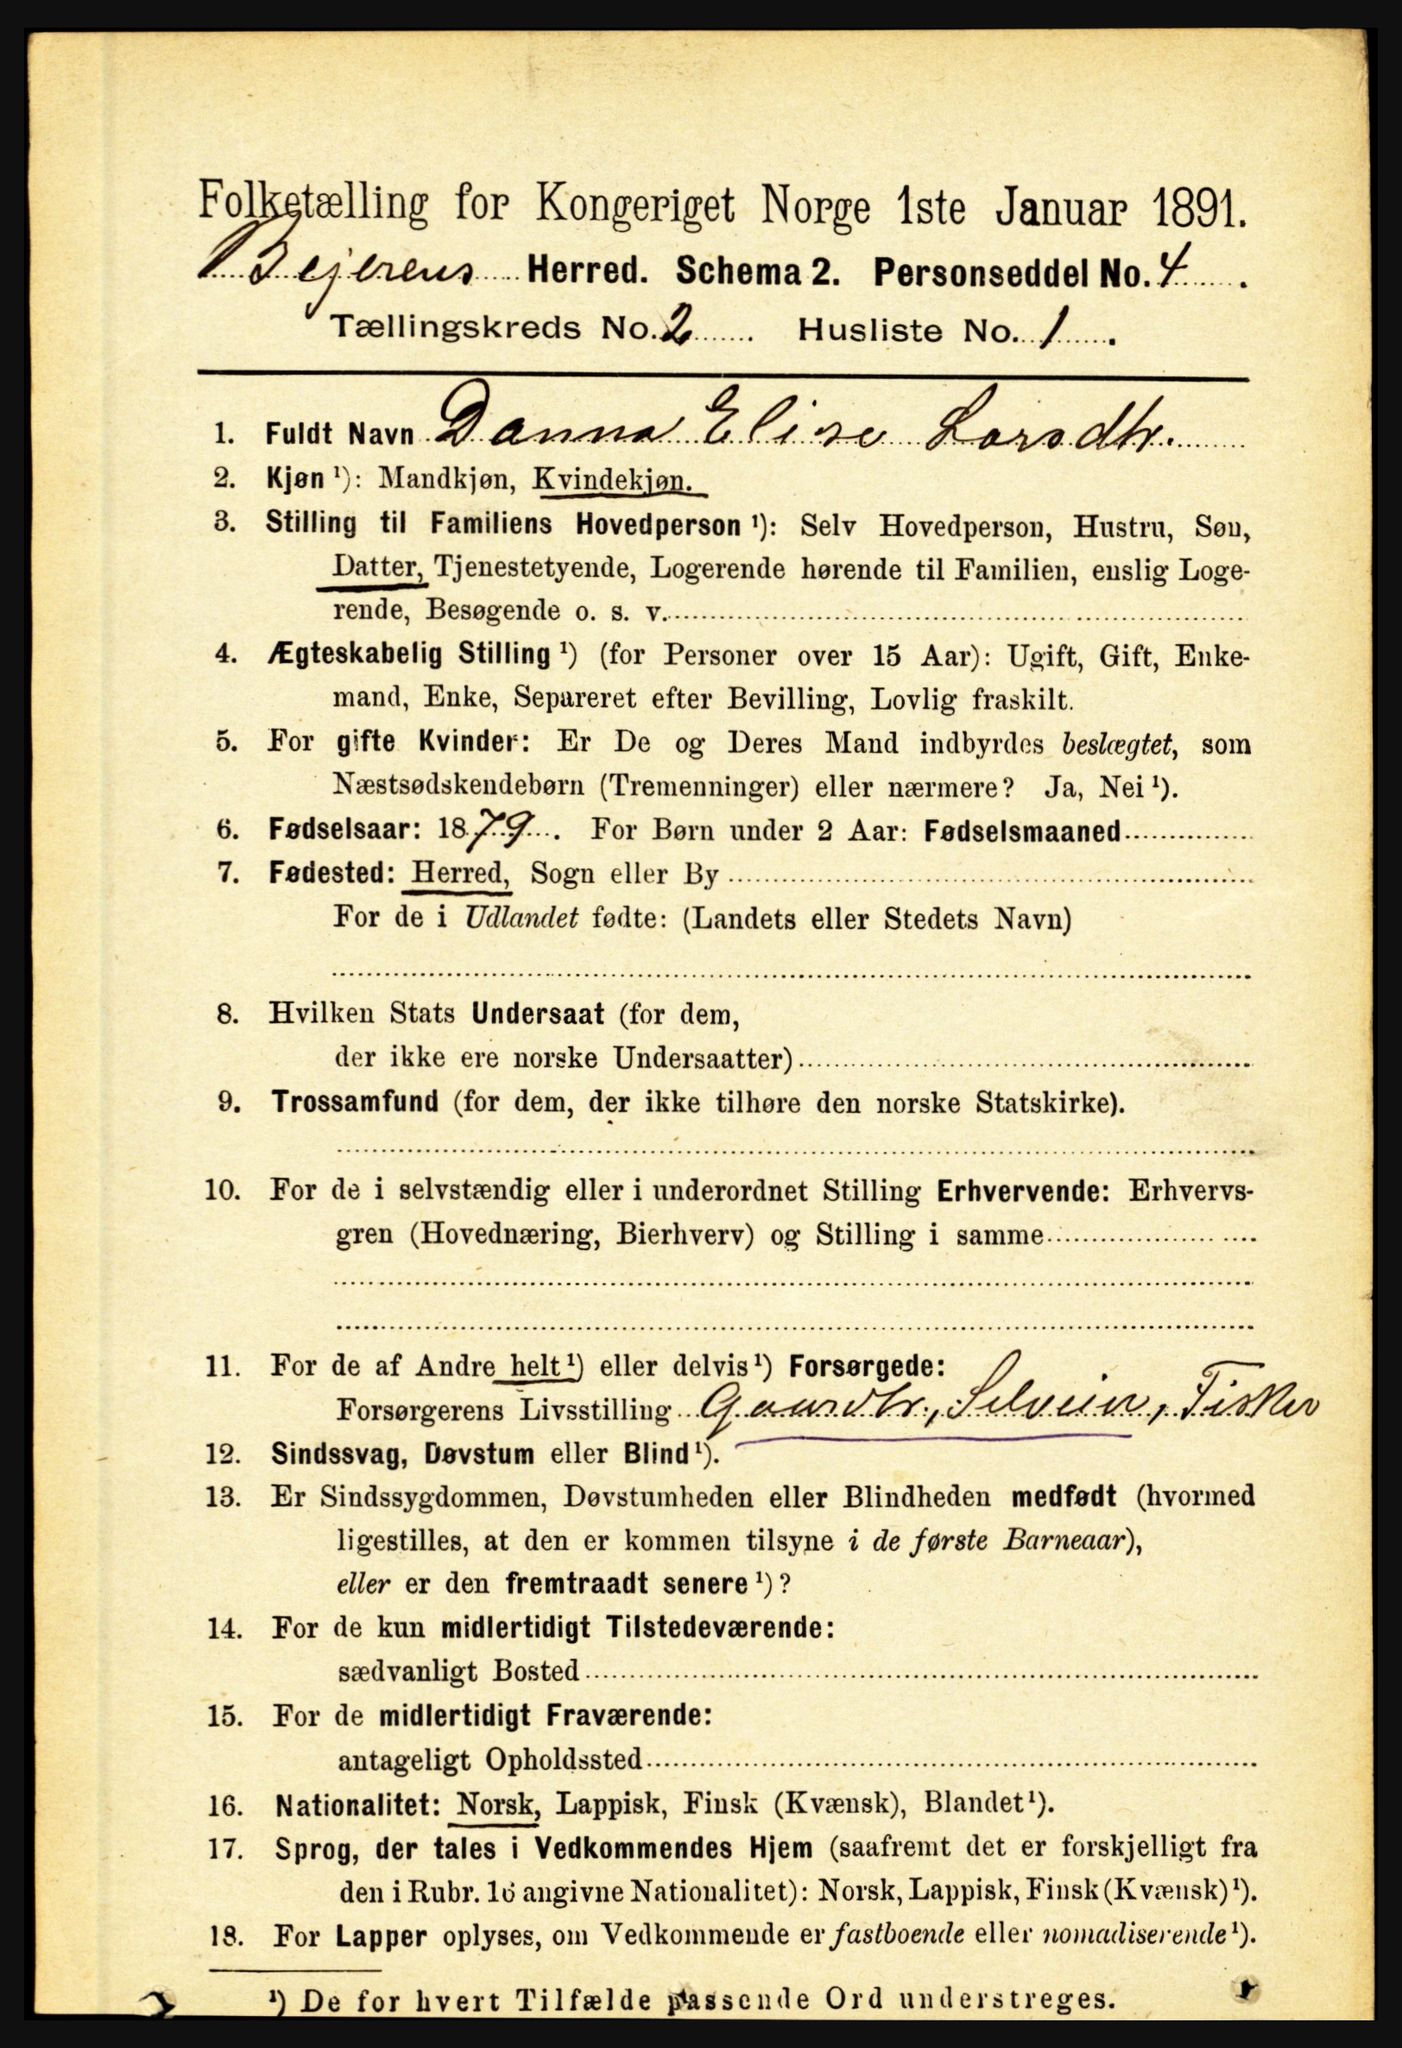 Folketælling for Kongeriget Norge 1ste Januar 1891.
Bejerens Herred. Schema 2. Personseddel No. 4.
Tællingskreds No. 2. Husliste No. 1.
1. Fuldt Navn Danna Elise Larsdtr.
2. Kjøn ¹): Mandkjøn, Kvindekjøn.
3. Stilling til Familiens Hovedperson ¹): Selv Hovedperson, Hustru, Søn,
Datter, Tjenestetyende, Logerende hørende til Familien, enslig Loge-
rende, Besøgende o. s. v.
4. Ægteskabelig Stilling ¹) (for Personer over 15 Aar): Ugift, Gift, Enke-
mand, Enke, Separeret efter Bevilling, Lovlig fraskilt.
5. For gifte Kvinder: Er De og Deres Mand indbyrdes beslægtet, som
Næstsødskendebørn (Tremenninger) eller nærmere? Ja, Nei ¹).
6. Fødselsaar: 1879. For Børn under 2 Aar: Fødselsmaaned
7. Fødested: Herred, Sogn eller By
For de i Udlandet fødte: (Landets eller Stedets Navn)
8. Hvilken Stats Undersaat (for dem,
der ikke ere norske Undersaatter)
9. Trossamfund (for dem, der ikke tilhøre den norske Statskirke).
10. For de i selvstændig eller i underordnet Stilling Erhvervende: Erhvervs-
gren (Hovednæring, Bierhverv) og Stilling i samme
11. For de af Andre helt ¹) eller delvis ¹) Forsørgede:
Forsørgerens Livsstilling Gaardbr., Selveier, Fisker
12. Sindssvag, Døvstum eller Blind ¹).
13. Er Sindssygdommen, Døvstumheden eller Blindheden medfødt (hvormed
ligestilles, at den er kommen tilsyne i de første Barneaar),
eller er den fremtraadt senere ¹)?
14. For de kun midlertidigt Tilstedeværende:
sædvanligt Bosted
15. For de midlertidigt Fraværende:
antageligt Opholdssted
16. Nationalitet: Norsk, Lappisk, Finsk (Kvænsk), Blandet ¹).
17. Sprog, der tales i Vedkommendes Hjem (saafremt det er forskjelligt fra
den i Rubr. 16 angivne Nationalitet): Norsk, Lappisk, Finsk (Kvænsk) ¹).
18. For Lapper oplyses, om Vedkommende er fastboende eller nomadiserende ¹).
¹) De for hvert Tilfælde passende Ord understreges.